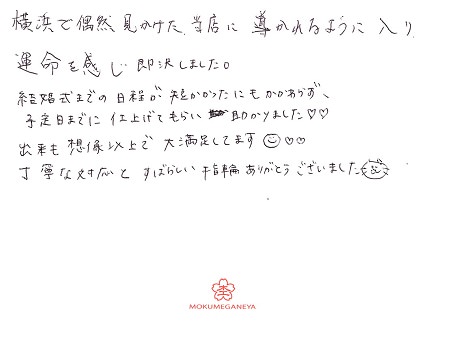 横浜で偶然見かけた当店に導かれるように入り
運命を感じ即決しました。
結婚式までの日程が短かかったにもかかわらず、
予定日までに仕上げてもらい助かりました♡♡
出来も想像以上で大満足してます☺♡♡
丁寧な対応とすばらしい指輪ありがとうございました☺
MOKUMEGANEYA